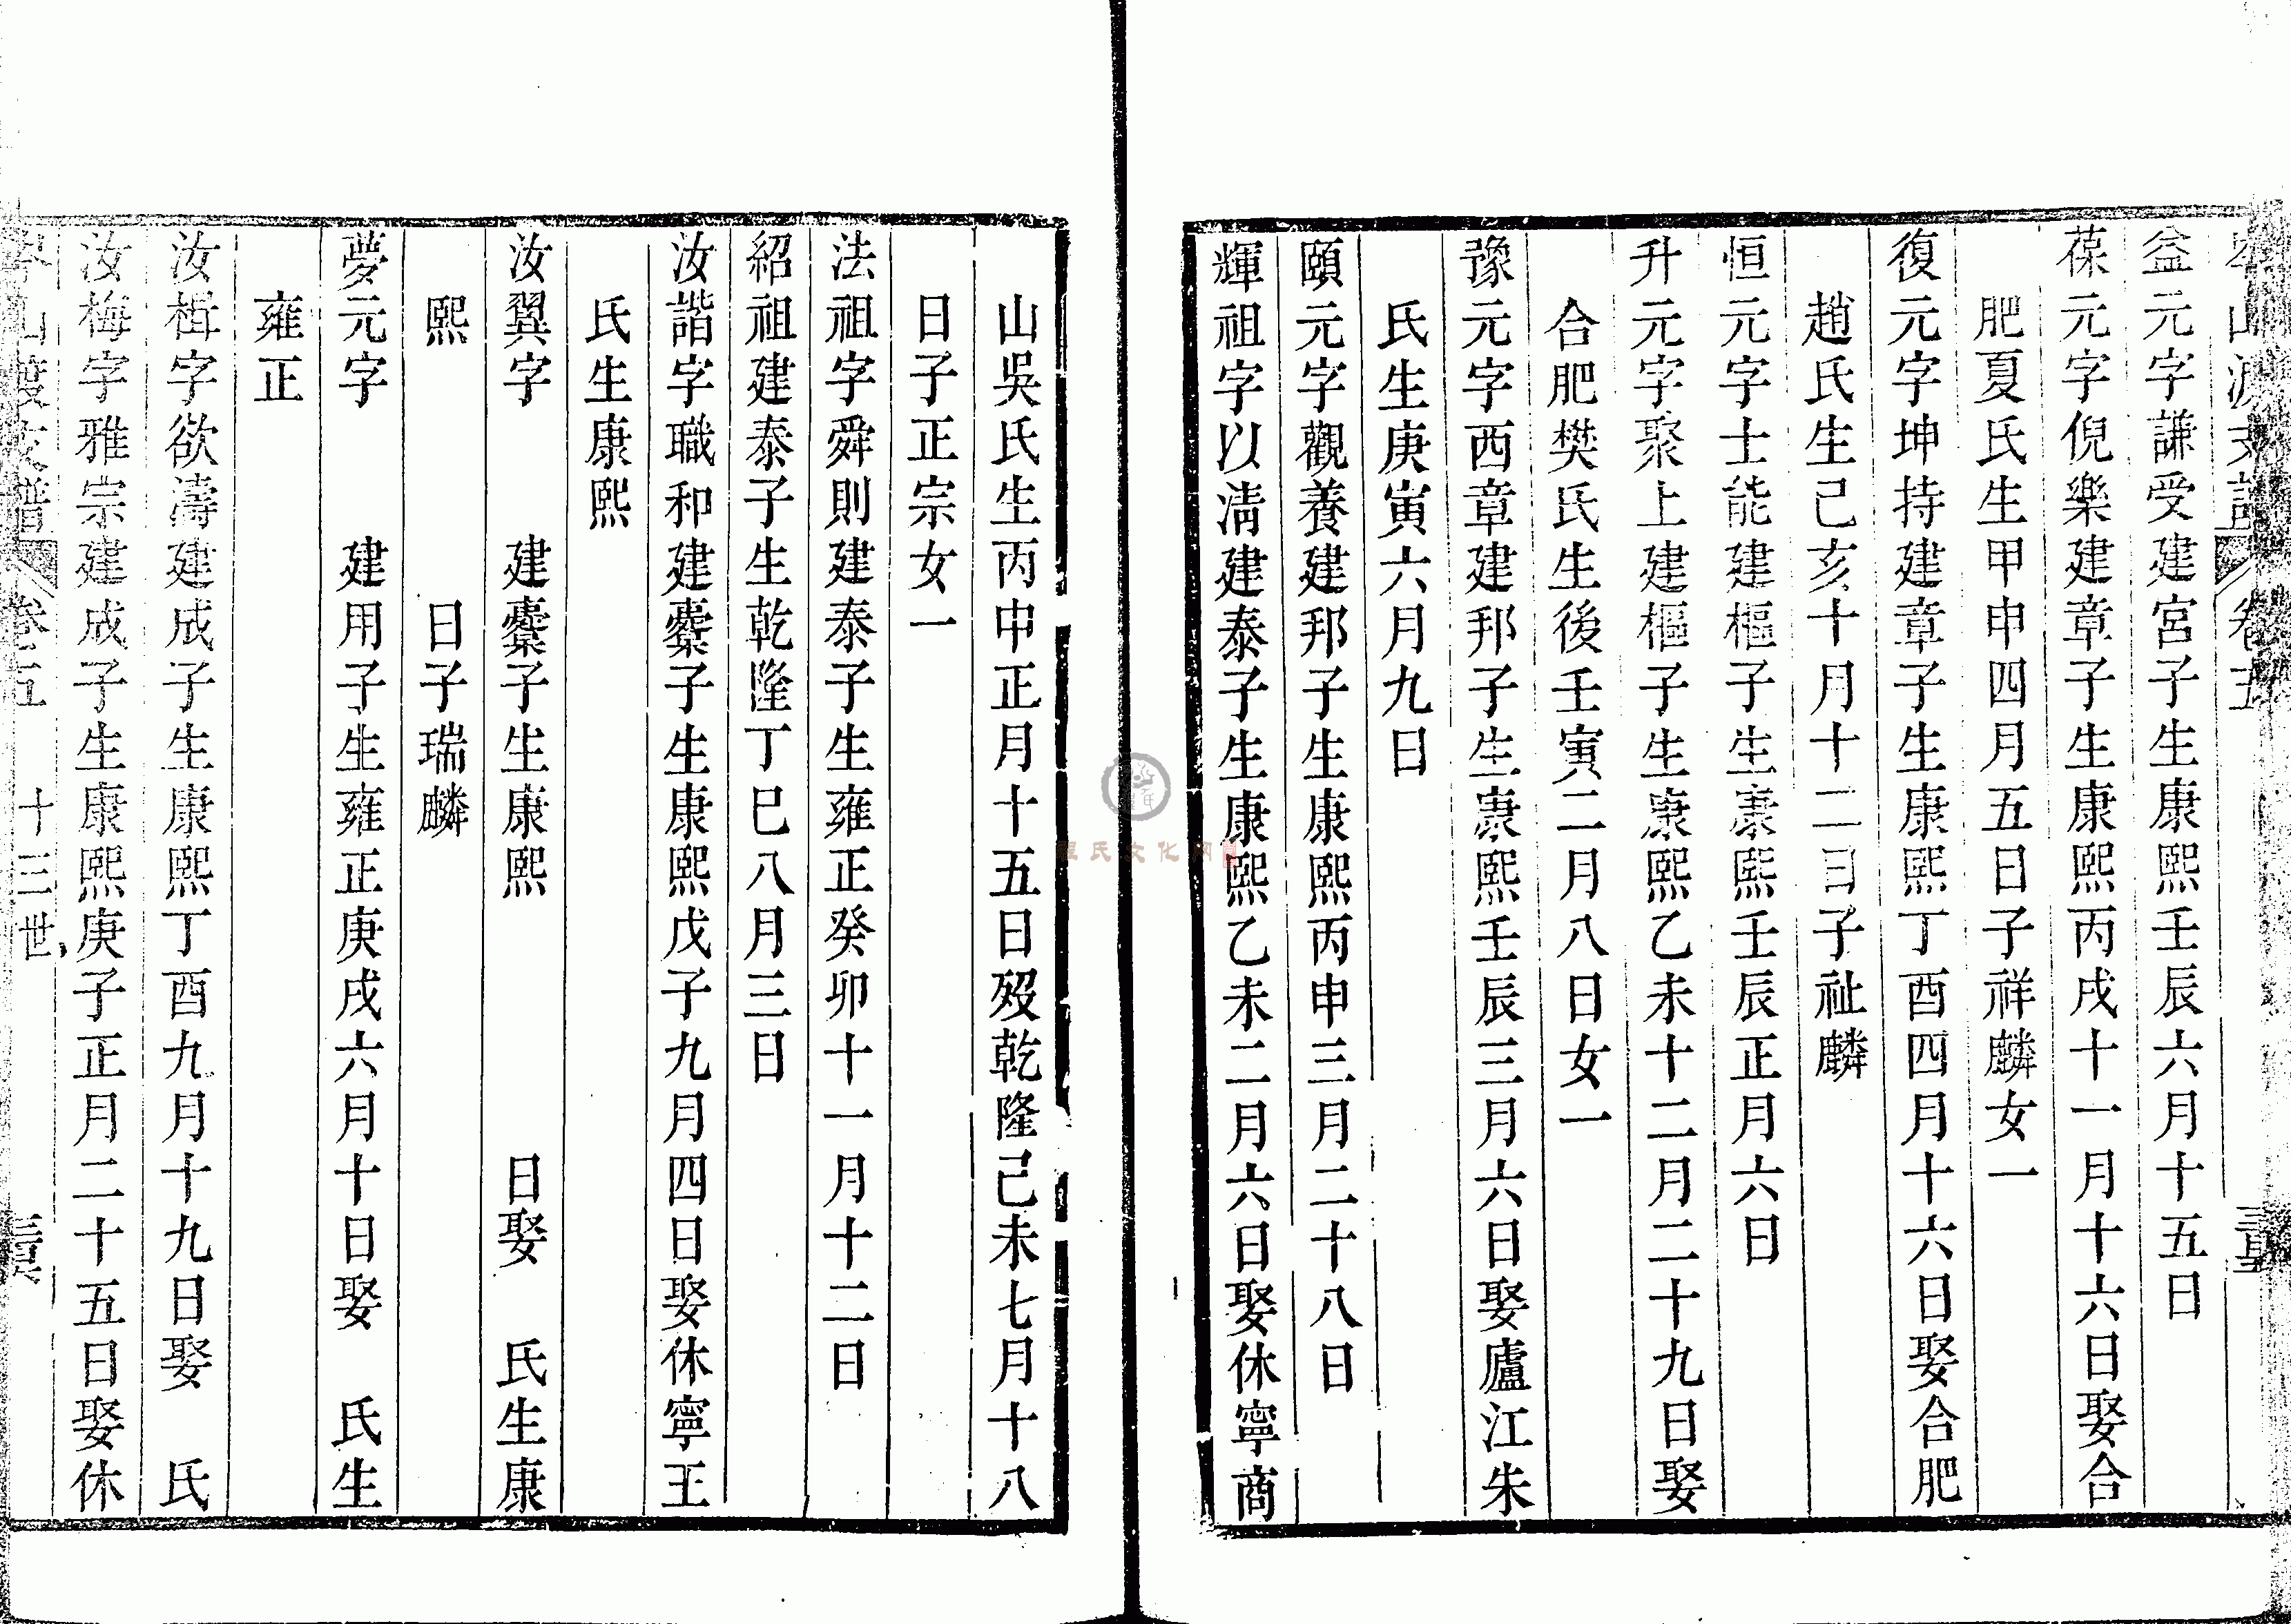 山 支譜 卷五
益元字謙受建宮子生康熙壬辰六月十五日
葆元字倪樂建章子生康熙丙戌十一月十六日娶合
肥夏氏生甲申四月五日子祥麟女一
復元字坤持建章子生康熙丁酉四月十六日娶合肥
趙氏生己亥十月十二日子祉麟
恒元字士能建樞子生康熙壬辰正月六日
升元字聚上建樞子生康熙乙未十二月二十九日娶
合肥樊氏生後壬寅二月八日女一
豫元字西章建邦子生康熙壬辰三月六日娶廬江朱
氏生庚寅六月九日
頤元字觀養建邦子生康熙丙申三月二十八日
輝祖字以清建泰子生康熙乙未二月六日娶休寧商
山吳氏生丙申正月十五日歿乾隆己未七月十八
日子正宗女一
法祖字舜則建泰子生雍正癸卯十一月十二日
紹祖建泰子生乾隆丁巳八月三日
汝諧字職和建櫜子生康熙戊子九月四日娶休寧王
氏生康熙
汝翼字 建櫜子生康熙 日娶 氏生康
熙 日子瑞麟
夢元字 建用子生雍正庚戌六月十日娶 氏生
雍正
汝楫字欲濤建成子生康熙丁酉九月十九日娶 氏
汝梅字雅宗建成子生康熙庚子正月二十五日娶休
山 支譜 卷五 十三世
程氏文化网